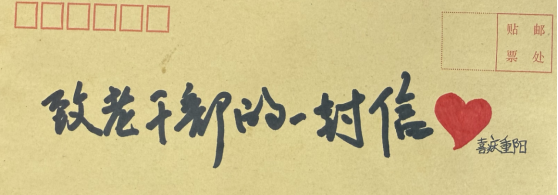 贴邮
票处
致老干部的一封信
喜庆重阳